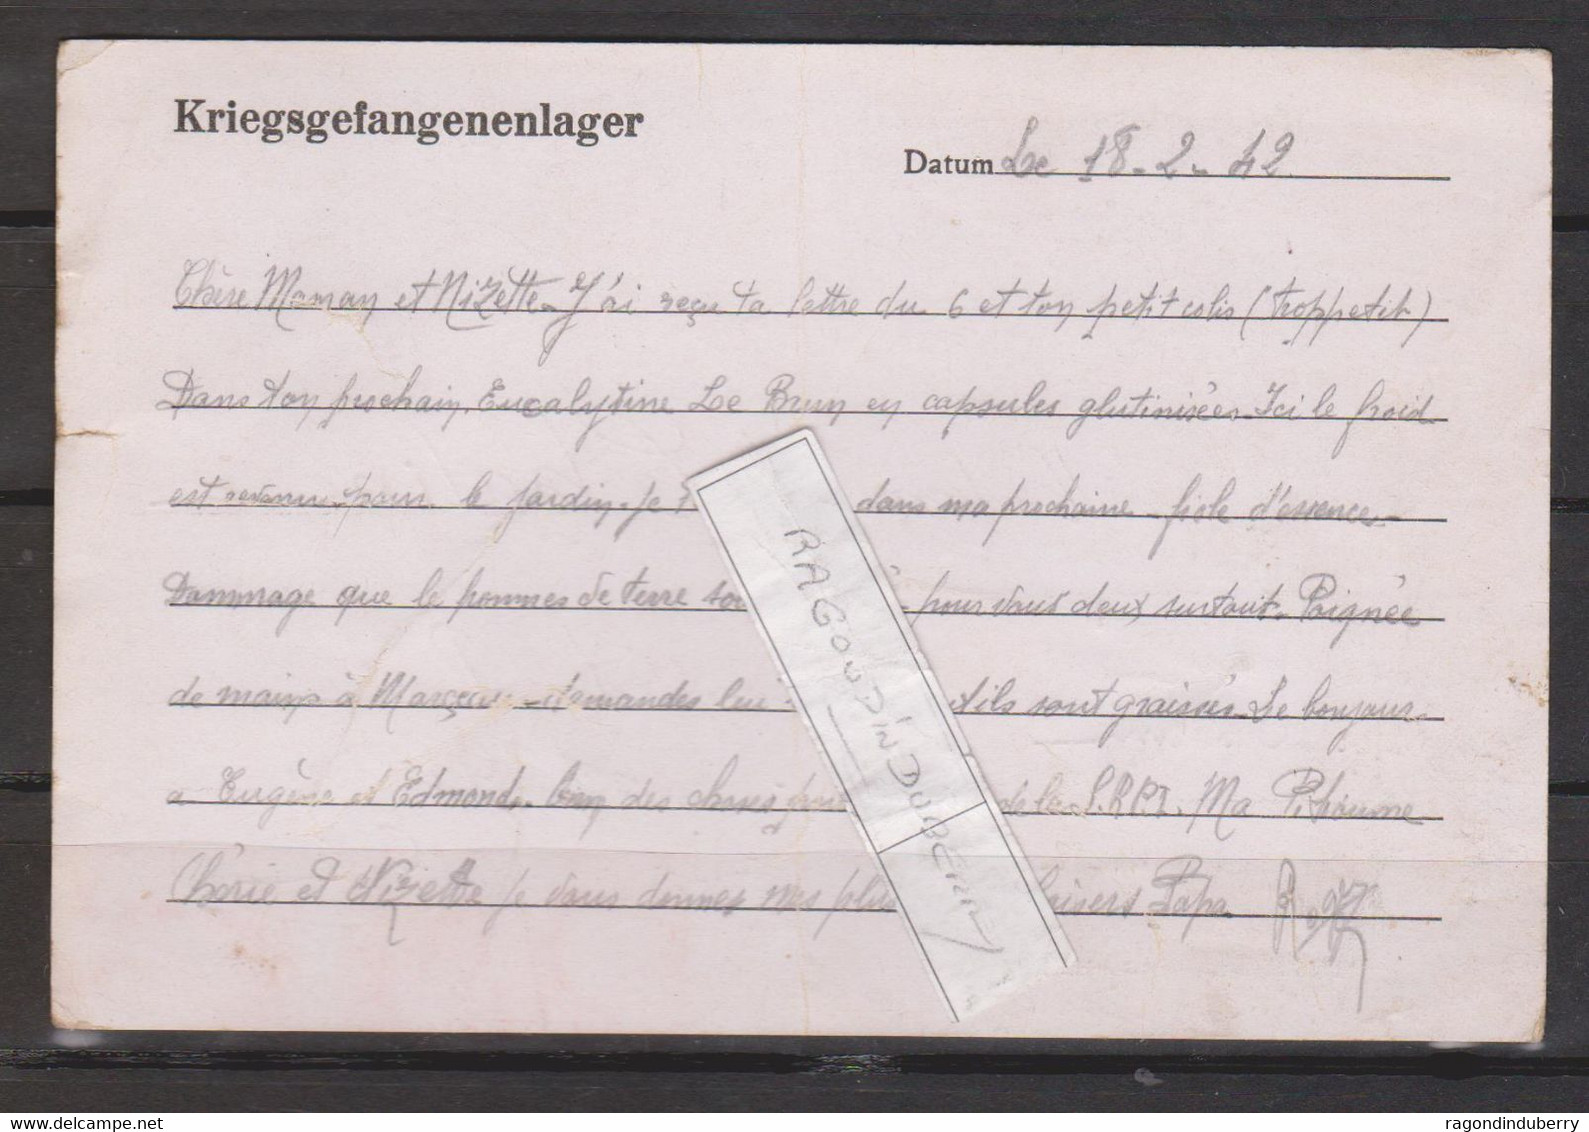 Kriegsgefangenenlager
Datum Le 18-2-42
Chère Maman et Nizette - J'ai reçu ta lettre du 6 et ton petit colis (trop petit)
Dans ton prochain. Eucalyptine Le Brun en capsules glutinisées - Ici le froid
est revenu pour le jardin. Je dans ma prochaine fiole d'essence -
Dommage que le pommes de terre pour vous deux surtout. Poignée
de mains à - demandes leur sont graissés. Le bonjour
a Eugène et Edmond. des choses de la Ma
Chérie et Nizette je vous donnes mes plus baisers Papa
RAGONDINDUBERRY
www.delcampe.net
ragondinduberry